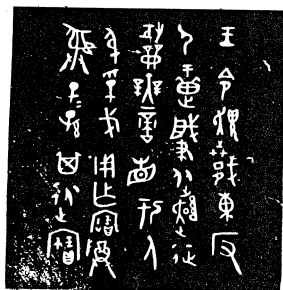 王令趞𢦏東反
夷疐肇從趞征
攻無啻省于人
身孚戈用乍寶尊
彝子孫其永寶